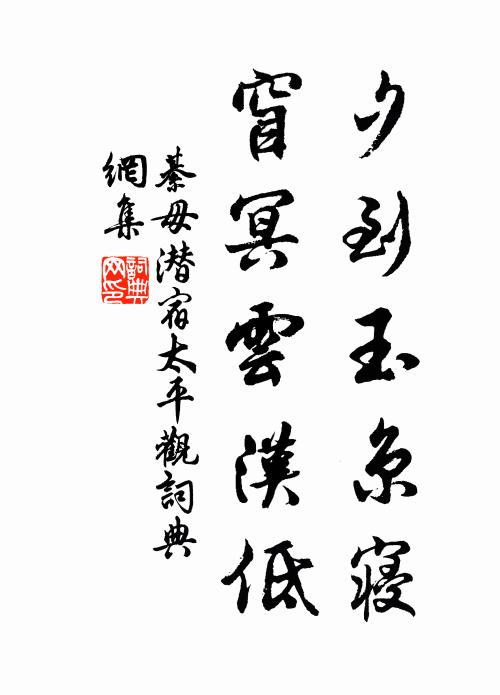 夕到玉京寝
窅冥雲漢低
綦毋潜宿太平觀詞典
網集
詞典網印